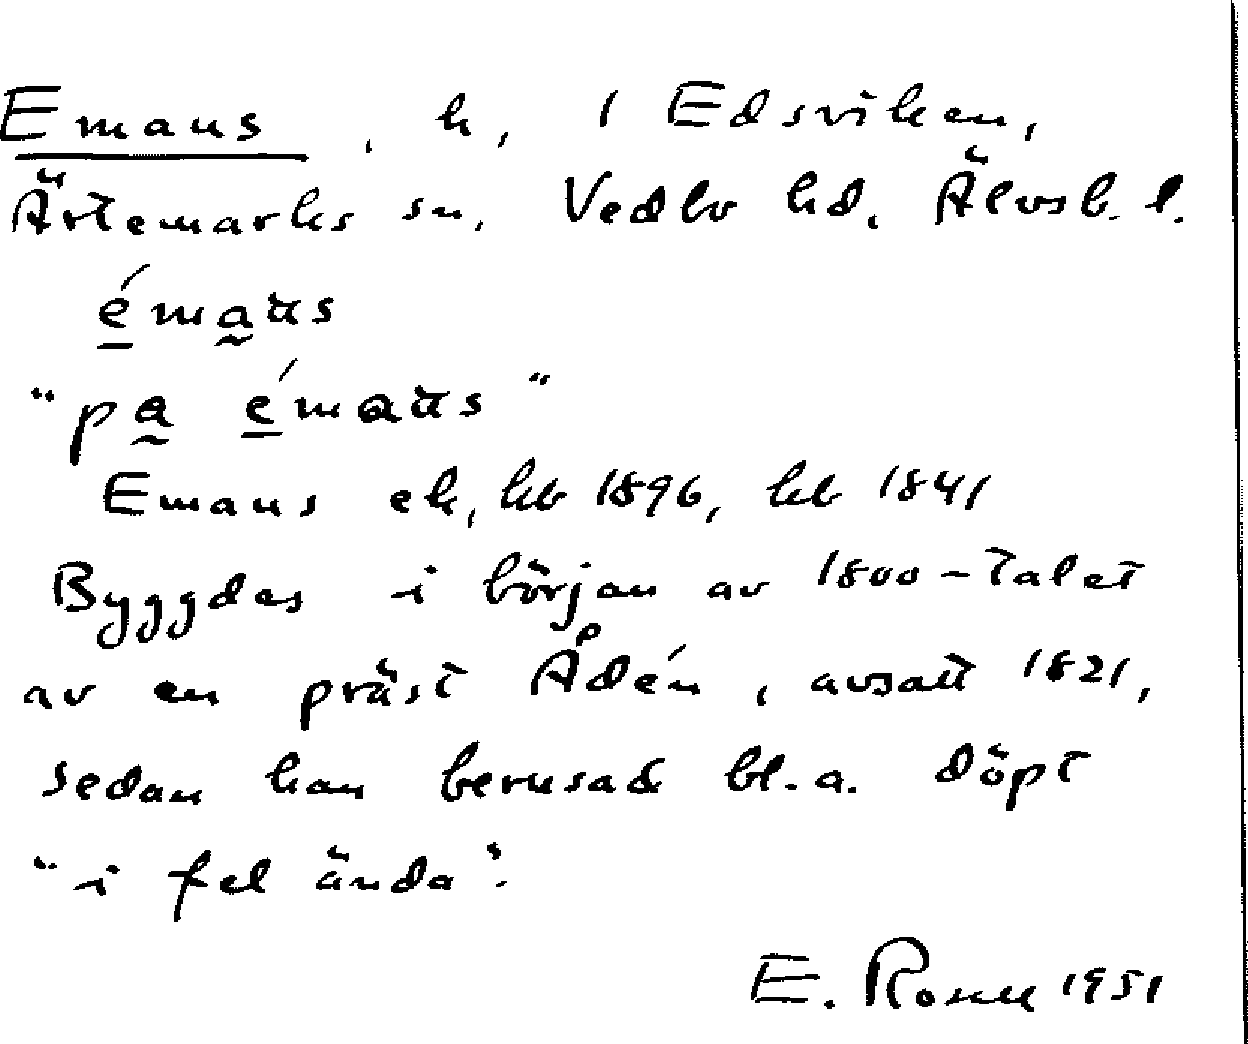 Emaus, h, 1 Edsviken,
Ärtemarks sn, Vedbo hd. Älvsb. l.
émaùs
"pa émaùs"
Emaus eh, kb 1896, kb 1841
Byggdes i början av 1800-talet
av en präst Ådén, avsatt 1821,
sedan han berusad bl.a. döpt
"i fel ända".
E. 1951